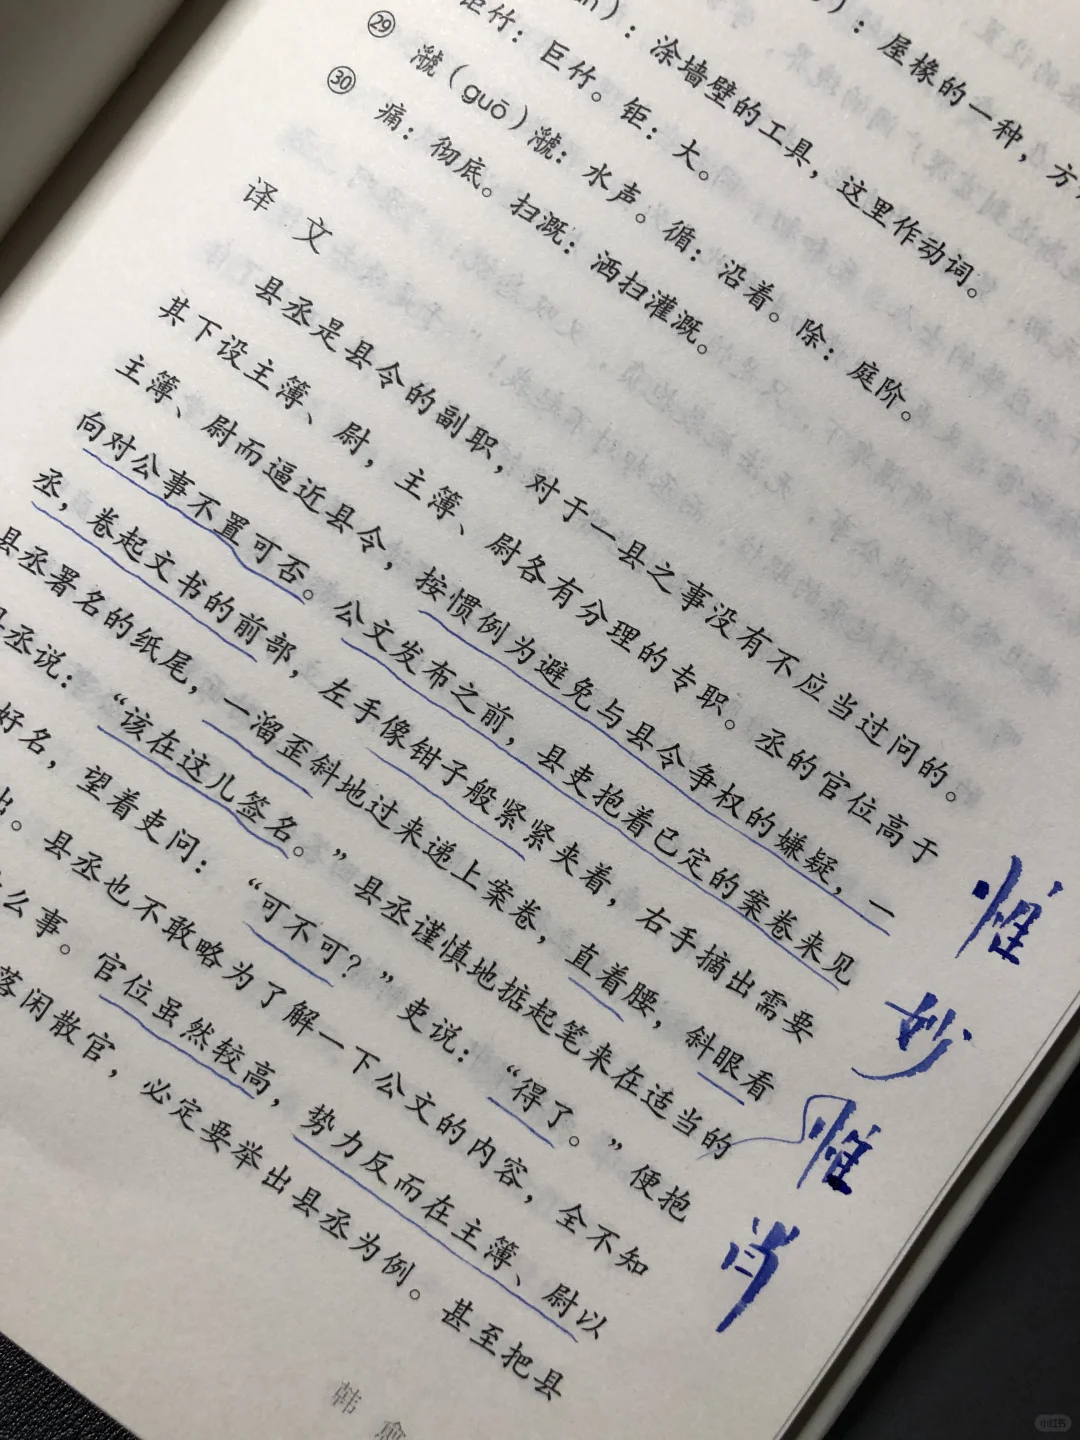 ：屋椽的一种，方
：涂墙壁的工具，这里作动词。
钜竹：巨竹。钜：大。
㉙ 㶁（guō）㶁：水声。循：沿着。除：庭阶。
㉚ 痛：彻底。扫溉：洒扫灌溉。
译文
县丞是县令的副职，对于一县之事没有不应当过问的。
其下设主簿、尉，主簿、尉各有分理的专职。丞的官位高于
主簿、尉而逼近县令，按惯例为避免与县令争权的嫌疑，一
向对公事不置可否。公文发布之前，县吏抱着已定的案卷来见
丞，卷起文书的前部，左手像钳子般紧紧夹着，右手摘出需要
县丞署名的纸尾，一溜歪斜地过来递上案卷，直着腰，斜眼看
丞说：“该在这儿签名。”县丞谨慎地掂起笔来在适当的
好名，望着吏问：“可不可？”吏说：“得了。”便抱
出。县丞也不敢略为了解一下公文的内容，全不知
么事。官位虽然较高，势力反而在主簿、尉以
落闲散官，必定要举出县丞为例。甚至把县
惟妙惟肖
韩愈